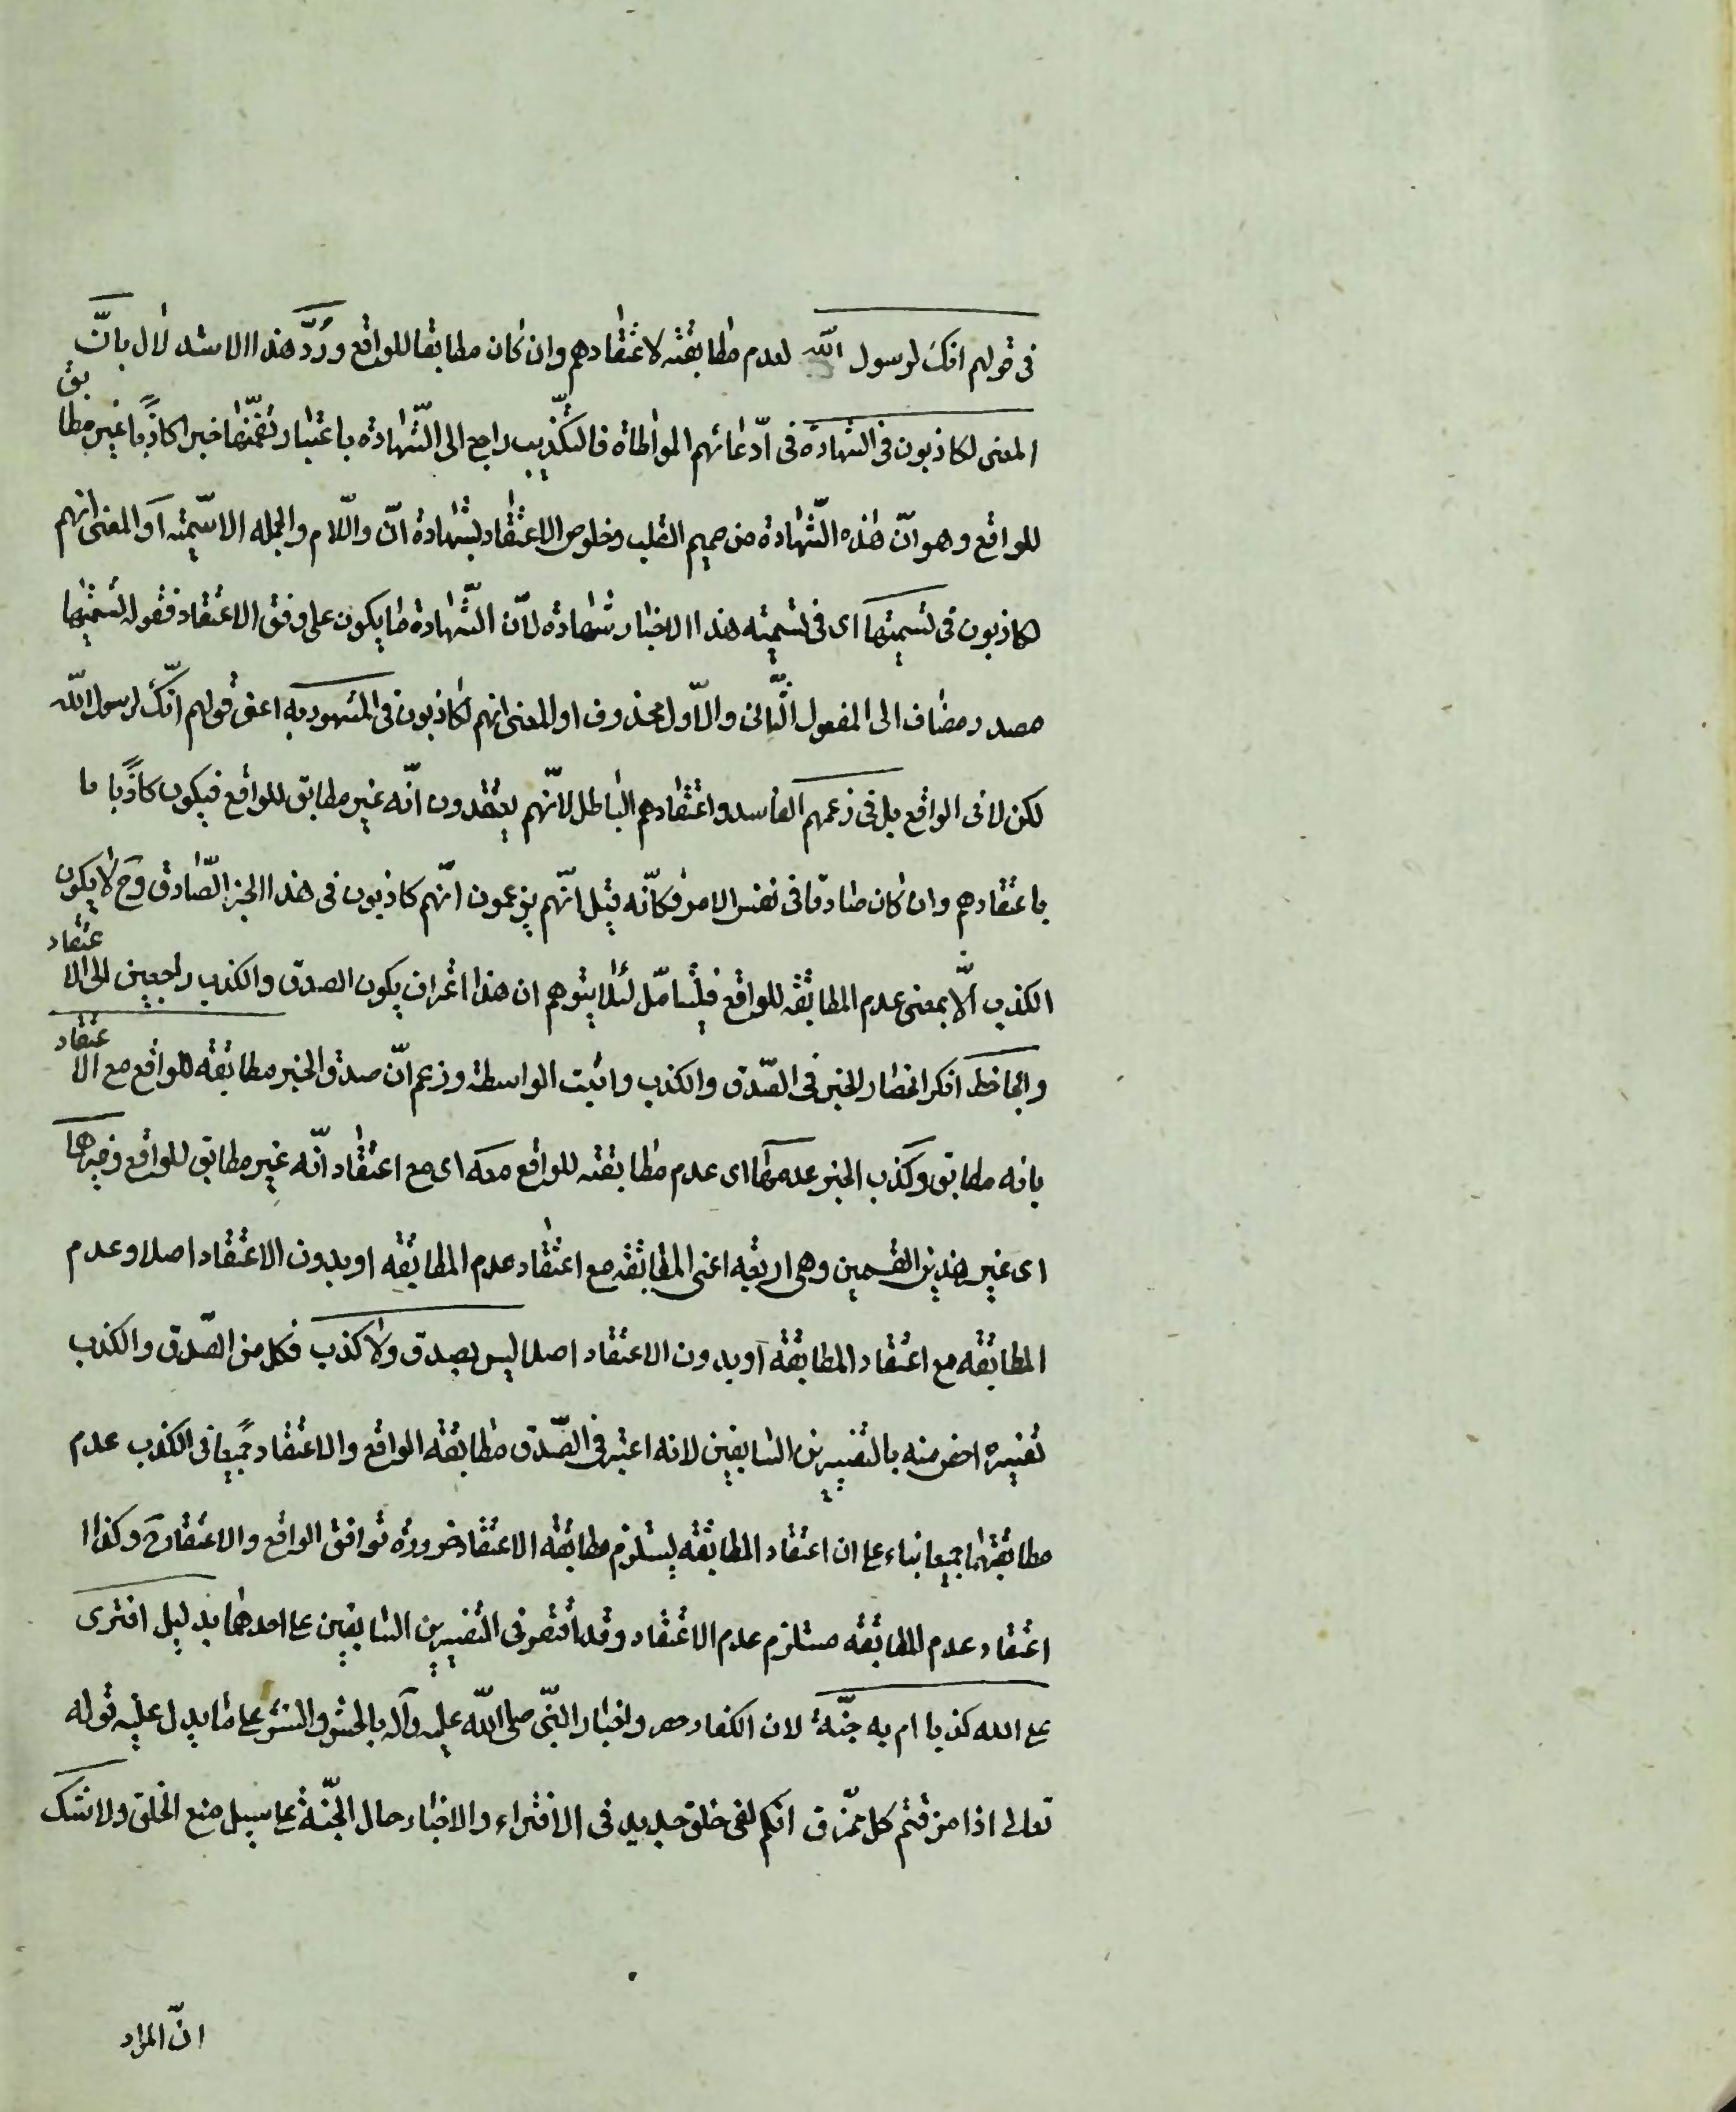 فى قولهم انك لرسول الله لعدم مطابقته لاعتقادهم وان كان مطابقا للواقع ورُدَّ هذا الاستدلال بانّ
المعنى لكاذبون فى الشهادة فى ادّعائهم المواطاة فالتكذيب راجع الى الشّهادة باعتبار تضمّنها خبرا كاذبًا غير مطابق
للواقع وهو انّ هذه الشّهادة من صميم القلب وخلوص الاعتقاد بشهادة انّ واللّام والجملة الاسّمية او المعنى انهم
لكاذبون فى تسميتها اى فى تسمية هذا الاخبار شهادة لانّ الشّهادة ما يكون على وفق الاعتقاد فقوله تسميتها
مصدر مضاف الى المفعول الثّانى والاوّل محذوف او المعنى انهم لكاذبون فى المشهود به اعنى قولهم انّك لرسول الله
لكن لا فى الواقع بل فى زعمهم الفاسد واعتقادهم الباطل لانّهم يعتقدون انّه غير مطابق للواقع فيكون كاذبًا با
باعتقادهم وان كان صادقا فى نفس الامر فكانّه قيل انّهم يزعمون انّهم كاذبون فى هذا الخبر الصّادق وح لا يكون
الكذب الّا بمعنى عدم المطابقة للواقع فليتامّل لئلا يتوهم ان هذا اعتراف بكون الصدق والكذب راجعين الى الاعتقاد
والجاحظ انكر انحصار الخبر فى الصّدق والكذب واثبت الواسطة وزعم انّ صدق الخبر مطابقة للواقع مع الاعتقاد
بانه مطابق وكذب الخبر عدمها اى عدم مطابقته للواقع معه اى مع اعتقاد انّه غير مطابق للواقع وغيرهما
اى غير هذين القسمين وهى اربعة اعنى المطابقة مع اعتقاد عدم المطابقة او بدون الاعتقاد اصلا وعدم
المطابقة مع اعتقاد المطابقة او بدون الاعتقاد اصلا ليس بصدق ولا كذب فكل من الصّدق والكذب
تفسيره اخص منه بالتفسيرين السابقين لانه اعتبر فى الصّدق مطابقة الواقع والاعتقاد جميعا فى الكذب عدم
مطابقتهما جميعا بناء على ان اعتقاد المطابقة يستلزم مطابقة الاعتقاد ضرورة توافق الواقع والاعتقاد ح وكذا ا
اعتقاد عدم المطابقة مستلزم عدم الاعتقاد وقد اقتصر فى التفسيرين السابقين على احدهما بدليل افترى
على الله كذبا ام به جنّة لان الكفار حصروا اخبار النّبى صلى الله عليه وآله بالحشر والنشر على ما يدل عليه قوله
تعالى اذا مزقتم كل ممزّق انكم لفى خلق جديد فى الافتراء والاخبار حال الجنّة على سبيل منع الخلو ولا شك
انّ المراد